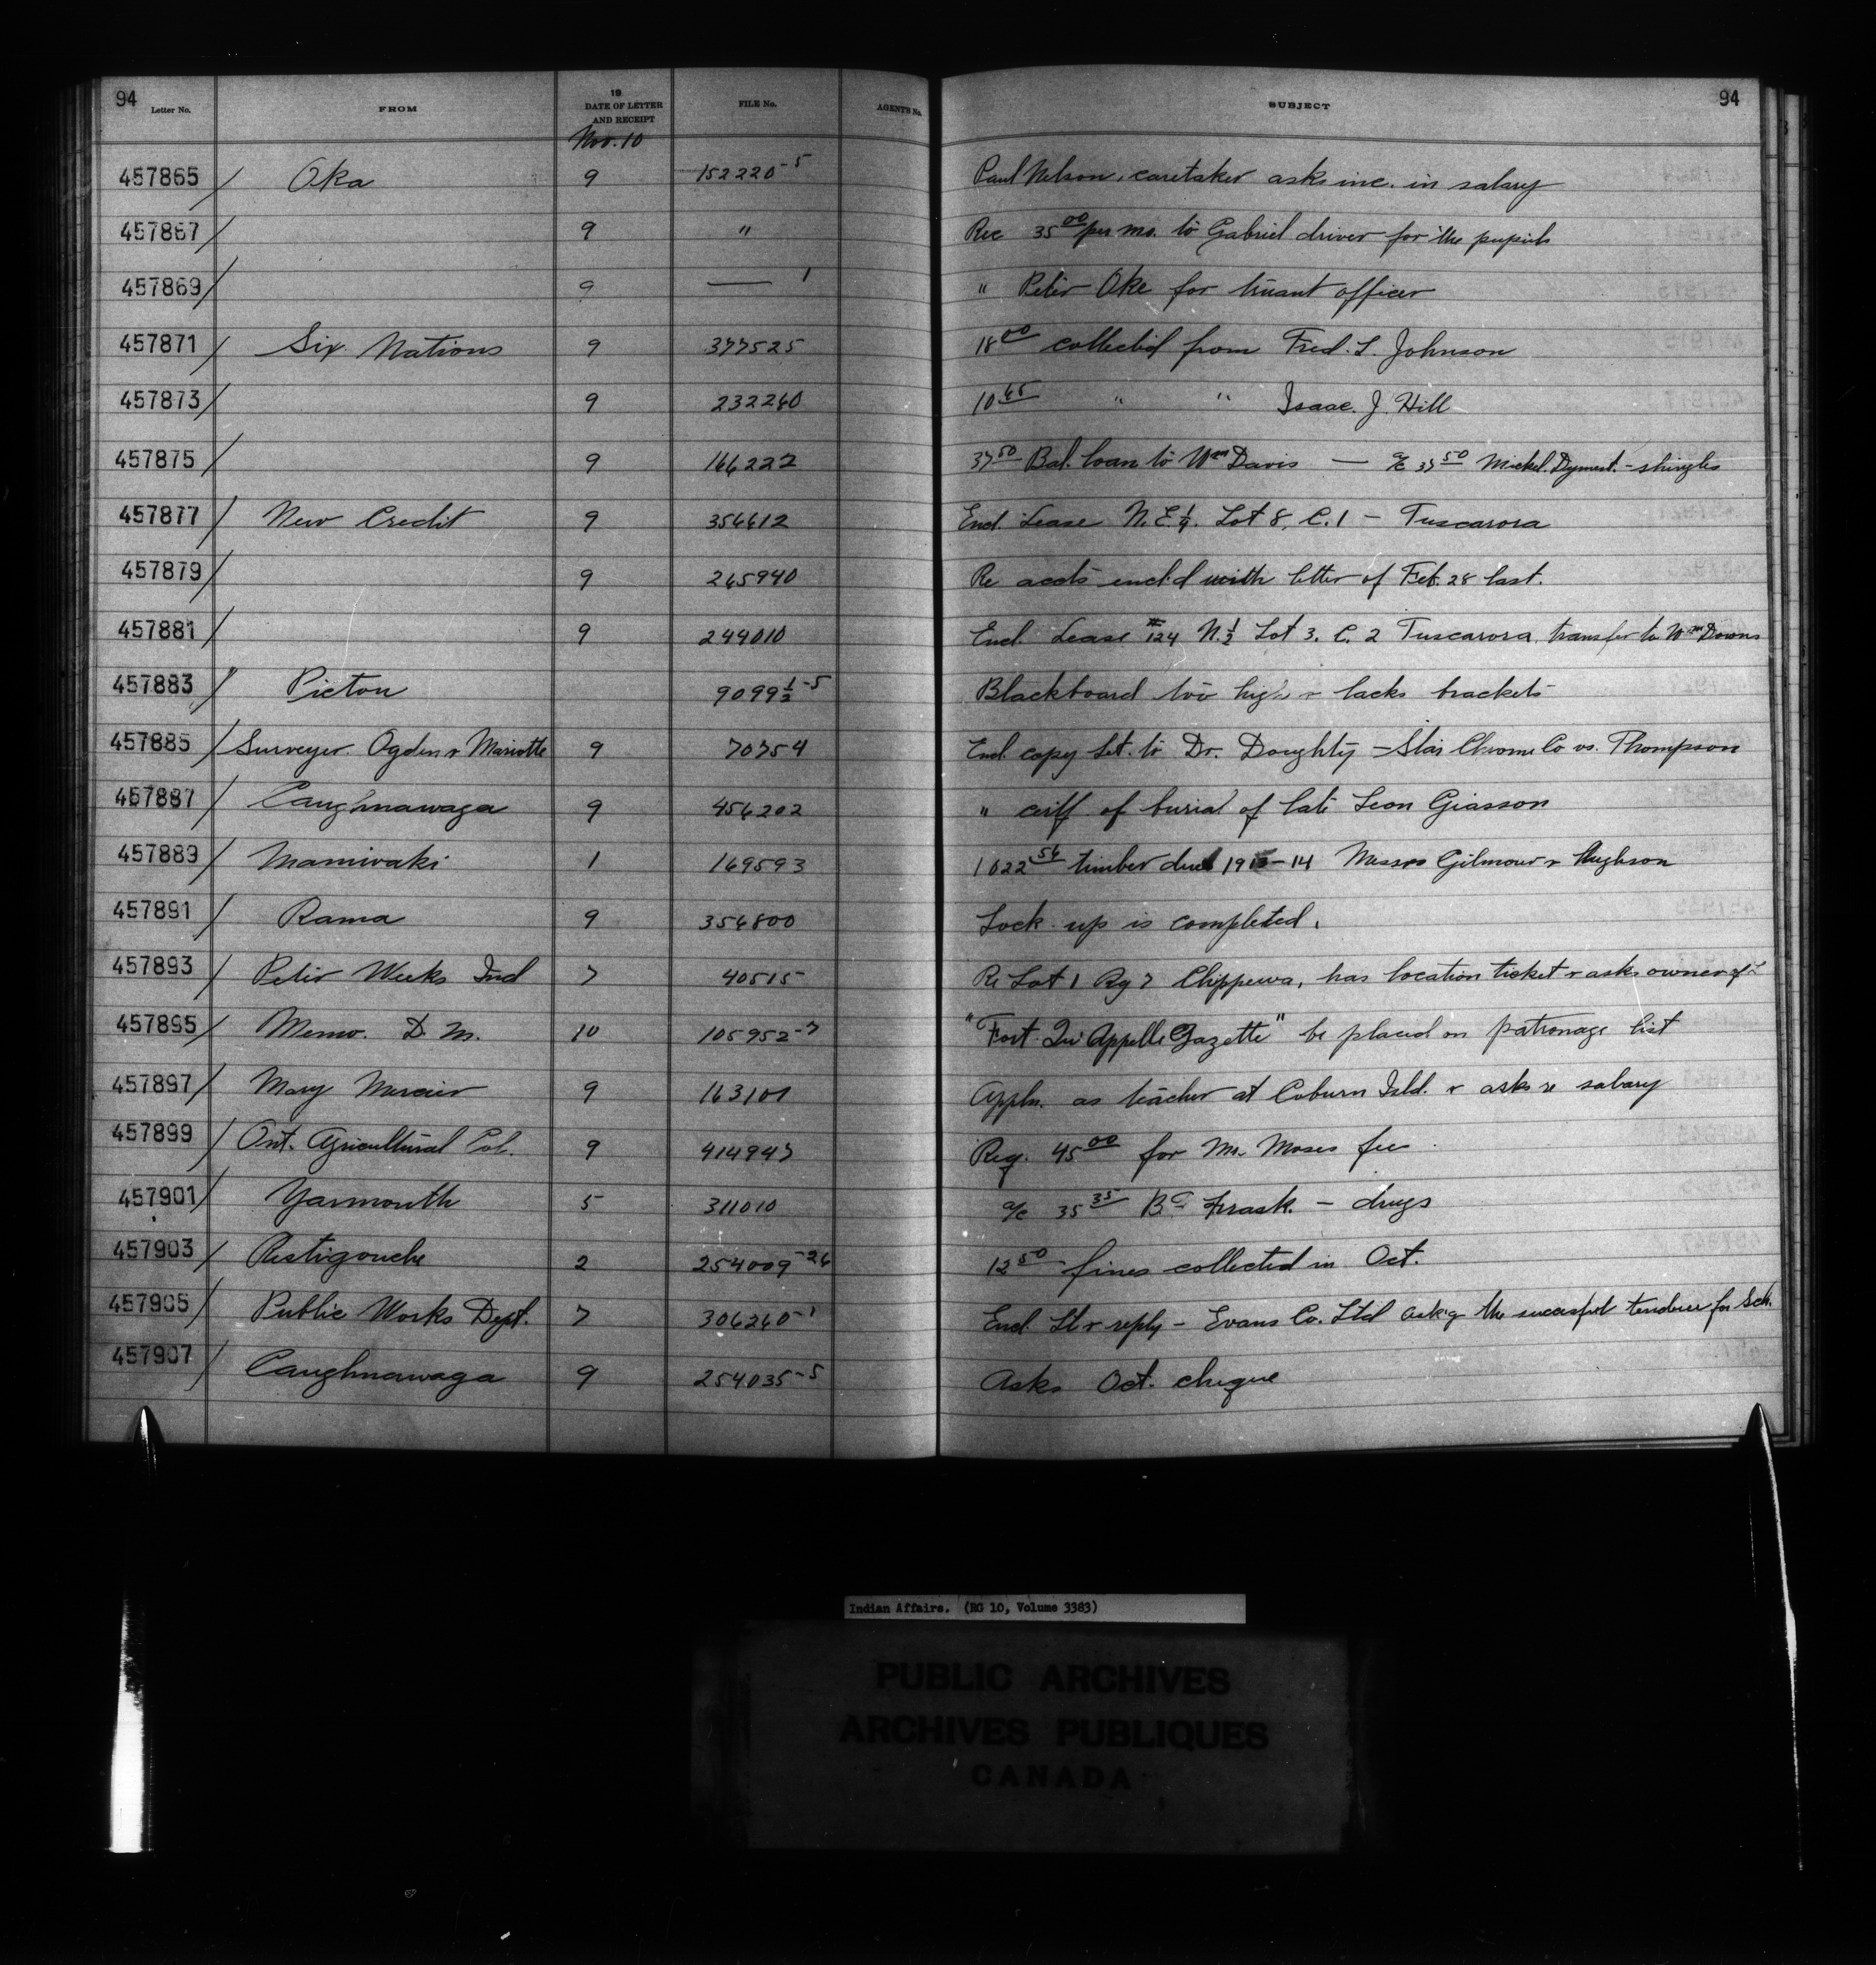 94 94
Letter No. FROM 19 DATE OF LETTER AND RECEIPT FILE No. AGENT'S No. SUBJECT
Nov. 10
457865 / Oka 9 152220-5 Paul Nelson, caretaker asks inc. in salary
457867 / 9 " Rec 35 00 per mo. to Gabriel driver for the pupils
457869 / 9 — 1 " Peter Oke for truant officer
457871 / Six Nations 9 377525 18 00 collected from Fred. L. Johnson
457873 / 9 232260 10 65 " " Isaac. J. Hill
457875 / 9 166222 37 50 Bal. loan to Wm Davis — a/c 37 50 Mickel. Dyment. - shingles
457877 / New Credit 9 356612 Encl. Lease N.E. ¼. Lot 8, C. 1 - Tuscarora
457879 / 9 265940 Re accts encl'd with letter of Feb. 28 last.
457881 / 9 249010 Encl. Lease #124 N. ½ Lot 3. C. 2 Tuscarora, transfer to Wm Downs
457883 " Picton 9099½-5 Blackboard too high & lacks brackets
457885 / Surveyer Ogden & Mariotte 9 70754 Encl. copy let. to Dr. Doughty - Star Chrome Co vs. Thompson
457887 / Caughnawaga 9 456202 " certf. of burial of late Leon Giasson
457889 / Maniwaki 1 169593 1022 56 timber dues 1913-14 Messrs Gilmour & Hughson
457891 / Rama 9 356800 Lock up is completed.
457893 / Peter Weeks Ind 7 40515 Re Lot 1 Rg 7 Chippewa, has location ticket & asks owner of
457895 / Memo. D. M. 10 105952-7 "Fort Qu'Appelle Gazette" be placed on patronage list
457897 / Mary Mercier 9 163101 Appln. as teacher at Coburn Isld. & asks re salary
457899 / Ont. Agricultural Col. 9 414947 Req. 45 00 for Mr. Moses fee
457901 / Yarmouth 5 311010 a/c 35 35 - drugs
457903 / Restigouche 2 254009-26 12 50 fines collected in Oct.
457905 / Public Works Dept. 7 306260-1 Encl. Lt & reply - Evans Co. Ltd ask'g the successful tenderer for Sch.
457907 / Caughnawaga 9 254035-5 Asks Oct. cheque
Indian Affairs. (RG 10, Volume 3383)
PUBLIC ARCHIVES
ARCHIVES PUBLIQUES
CANADA